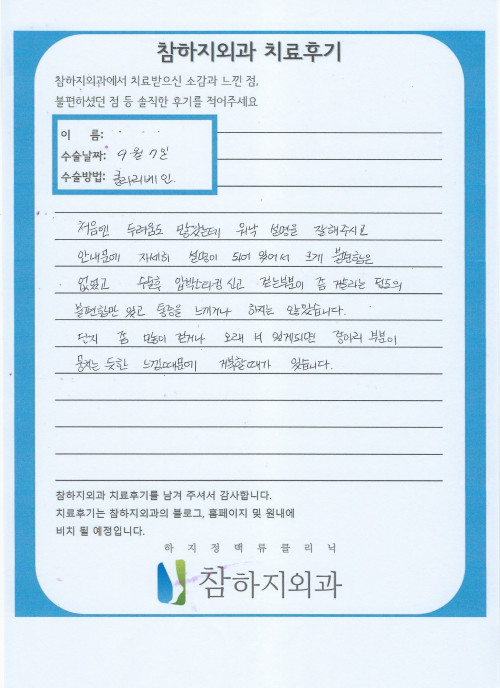 참하지외과 치료후기
참하지외과에서 치료받으신 소감과 느낀 점,
불편하셨던 점 등 솔직한 후기를 적어주세요
이 름:
수술날짜: 9월 7일
수술방법: 클라리베인.
처음엔 두려움도 많았는데 워낙 설명을 잘해주시고
안내문에 자세히 설명이 되어 있어서 크게 불편함은
없었고 수술후 압박스타킹 신고 걷는부분이 좀 거슬리는 정도의
불편함만 있고 통증을 느끼거나 하지는 않았습니다.
단지 좀 많이 걷거나 오래 서 있게되면 종아리 부분이
뭉치는 듯한 느낌때문에 거북할때가 있습니다.
참하지외과 치료후기를 남겨 주셔서 감사합니다.
치료후기는 참하지외과의 블로그, 홈페이지 및 원내에
비치 될 예정입니다.
하지정맥류클리닉
참하지외과